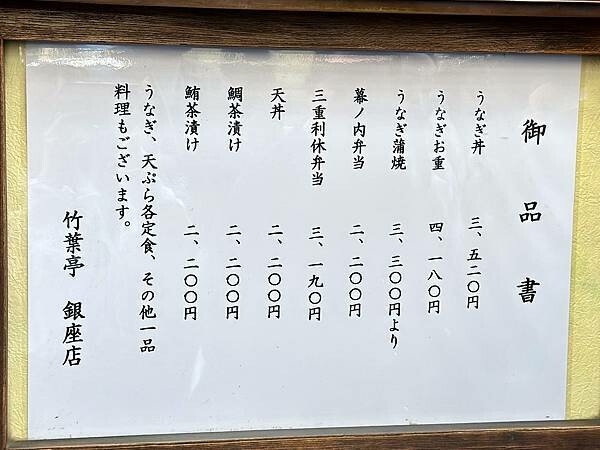 御品書
うなぎ丼 三、五二〇円
うなぎお重 四、一八〇円
うなぎ蒲焼 三、三〇〇円より
幕ノ内弁当 二、二〇〇円
三重利休弁当 三、一九〇円
天丼 二、二〇〇円
鯛茶漬け 二、二〇〇円
鮪茶漬け 二、二〇〇円
うなぎ、天ぷら各定食、その他一品
料理もございます。
竹葉亭 銀座店